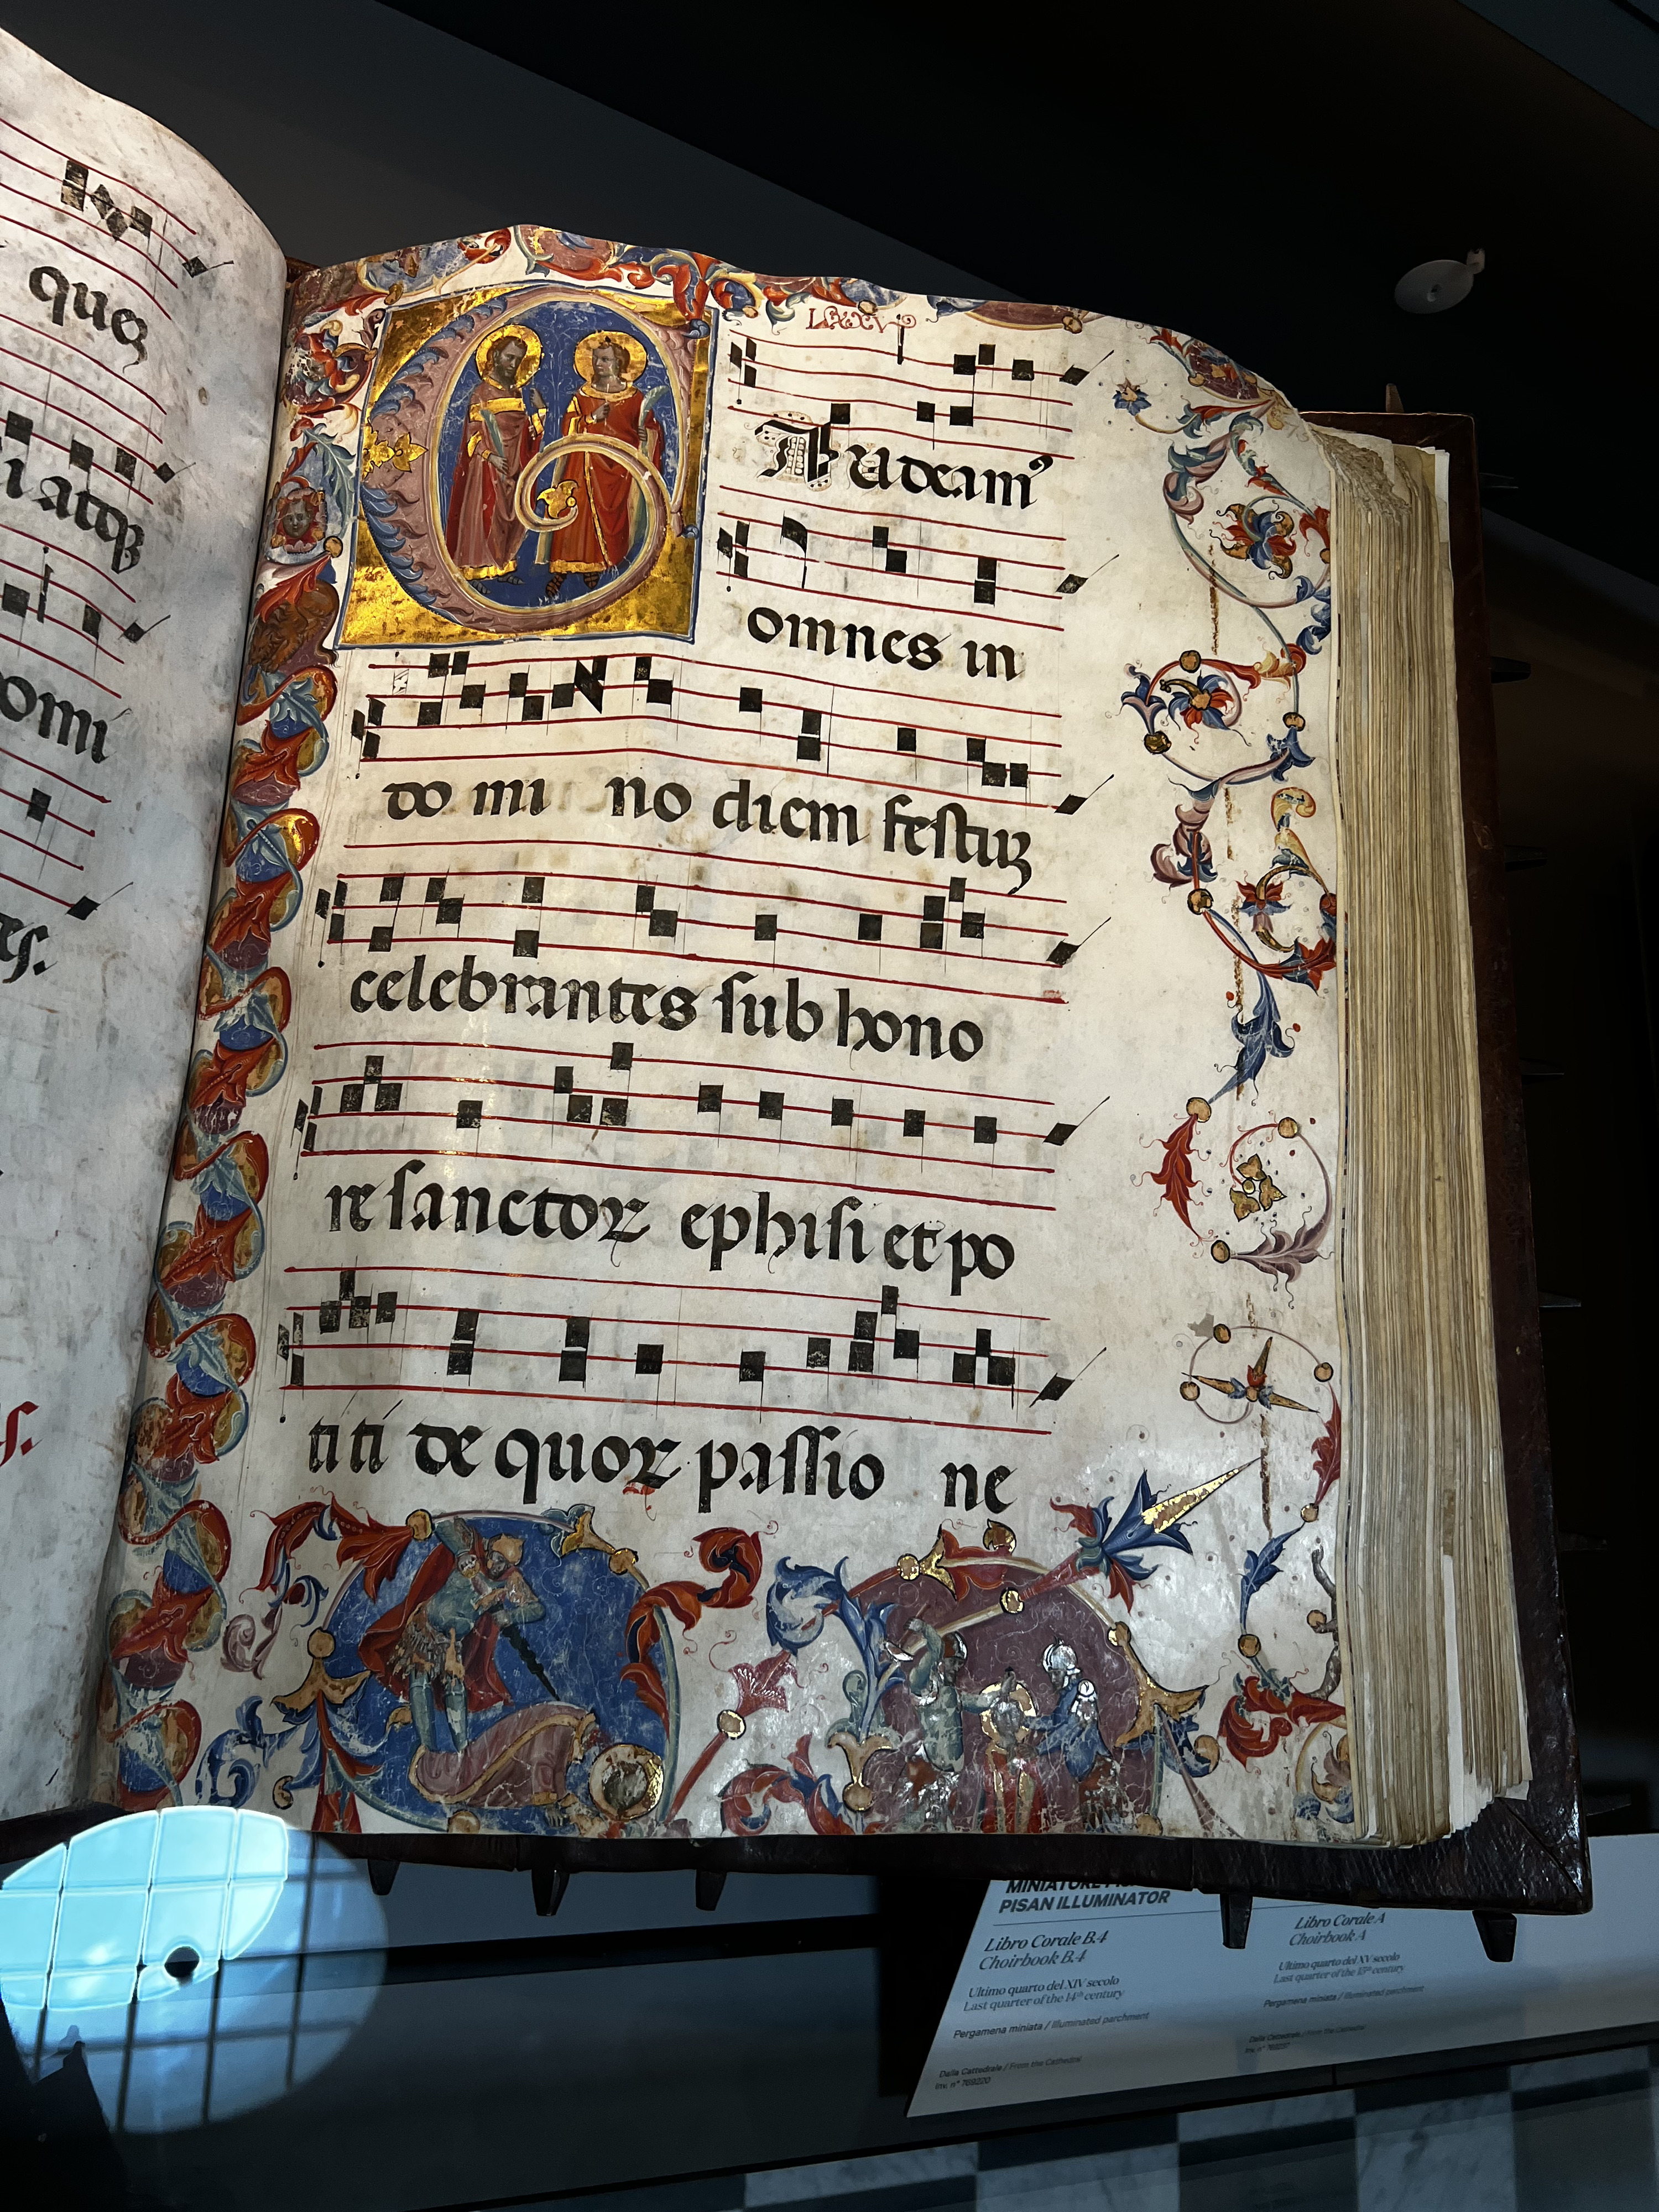 que
i atqꝫ
omi
LXXV
GAudeam⁹
omnes in
do mi no diem festuꝫ
celebrantes sub hono
re sanctoꝝ ephisi et po
titi de quoꝝ passio ne
PISAN ILLUMINATOR
Libro Corale B.4
Choirbook B.4
Ultimo quarto del XIV secolo
Last quarter of the 14th century
Pergamena miniata / Illuminated parchment
Dalla Cattedrale / From the Cathedral
Inv. n° 769220
Libro Corale A
Choirbook A
Ultimo quarto del XV secolo
Last quarter of the 15th century
Pergamena miniata / Illuminated parchment
Dalla Cattedrale / From the Cathedral